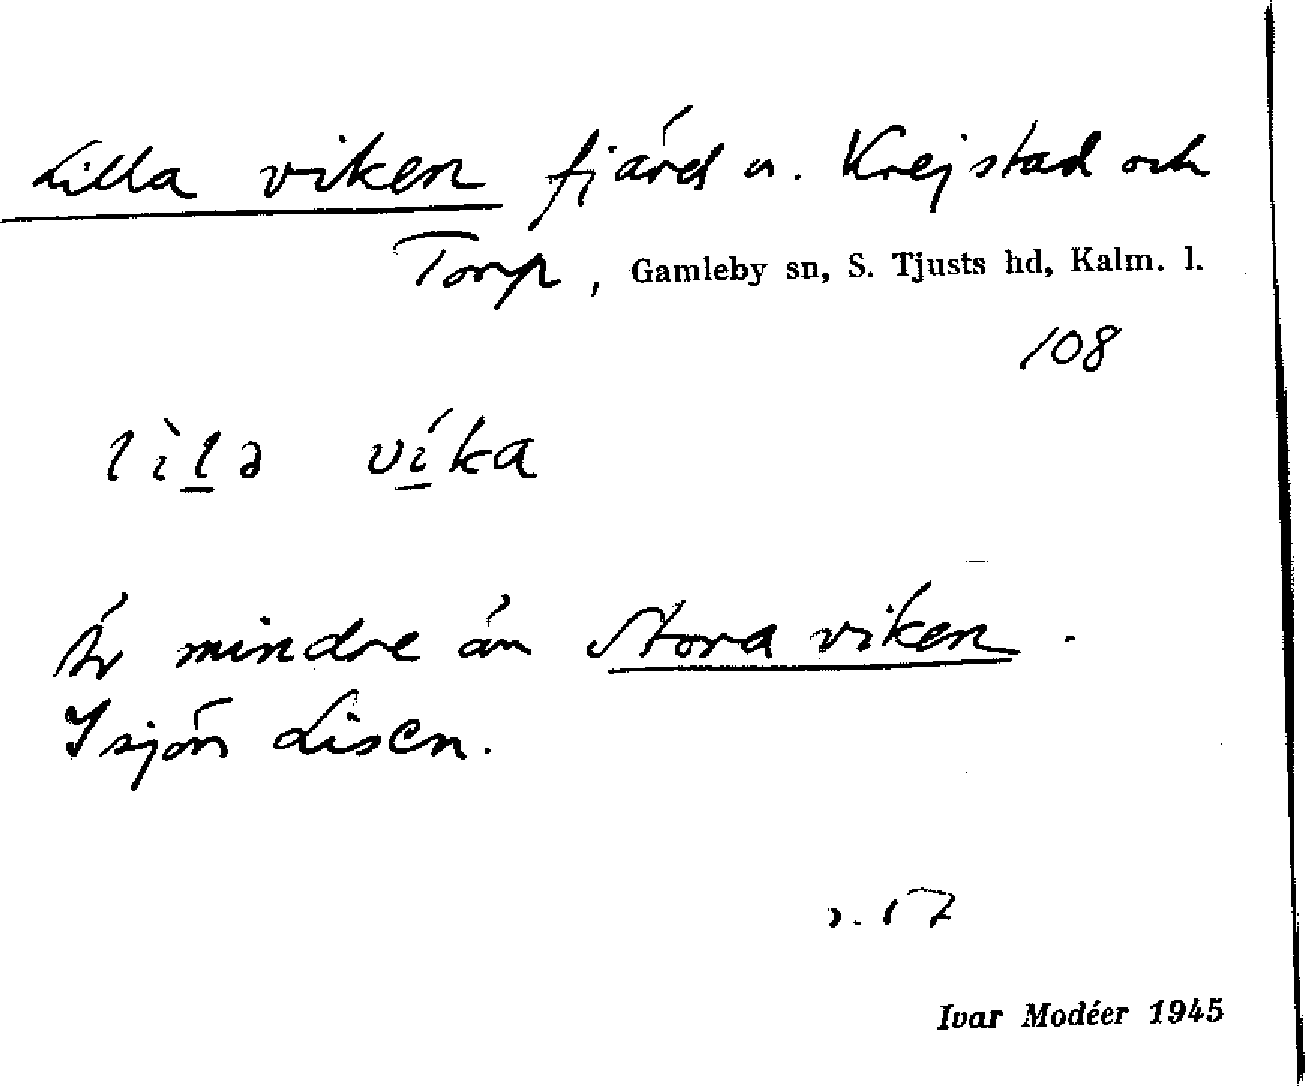 Lilla viken fjärd n. Krejstad och
Torp, Gamleby sn, S. Tjusts hd, Kalm. l.
108
lìlə víka
Är mindre än Stora viken.
I sjön Lisen.
s. 17
Ivar Modéer 1945